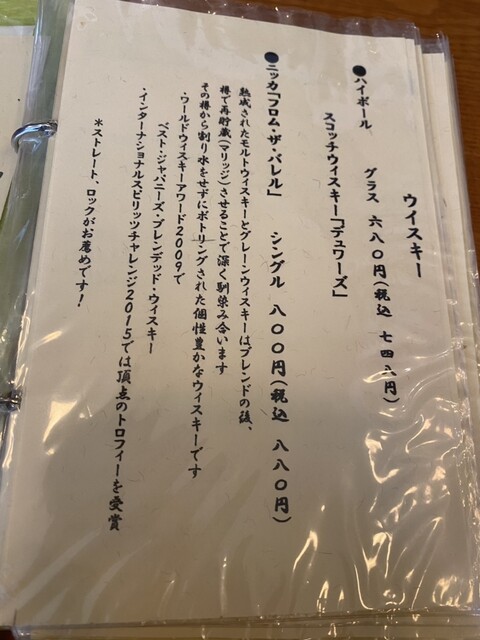 ウイスキー
●ハイボール、 グラス 六八〇円(税込 七四八円)
スコッチウィスキー「デュワーズ」
●ニッカ「フロム・ザ・バレル」 シングル 八〇〇円(税込 八八〇円)
熟成されたモルトウィスキーとグレーンウィスキーはブレンドの後、
樽で再貯蔵(マリッジ)させることで深く馴染み合います
その樽から割り水をせずにボトリングされた個性豊かなウィスキーです
・ワールドウィスキーアワード2009で
ベスト・ジャパニーズ・ブレンデッド・ウィスキー
・インターナショナルスピリッツチャレンジ2015では頂点のトロフィーを受賞
*ストレート、ロックがお薦めです!